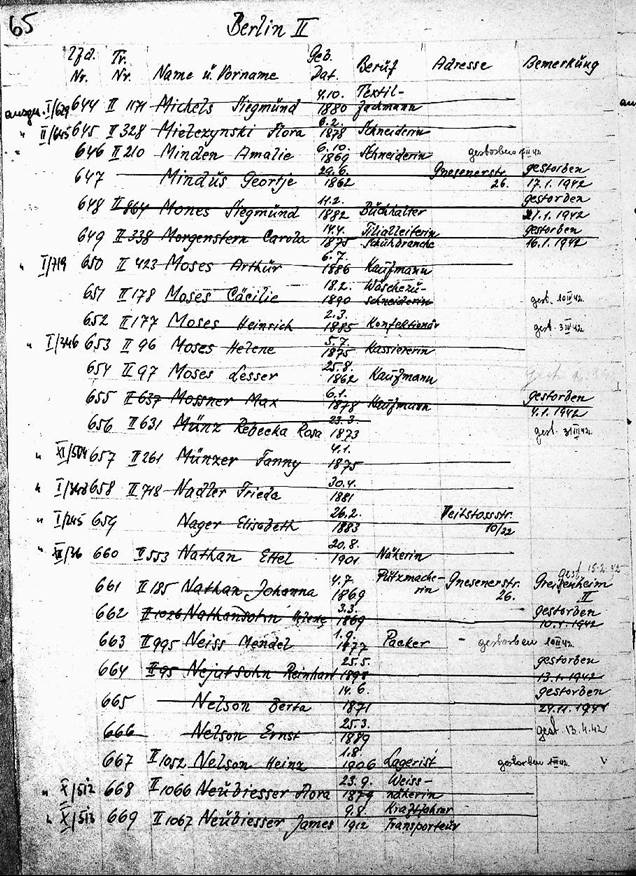 65
Berlin II
Lfd. Nr. Tr. Nr. Name u. Vorname Geb. Dat. Beruf Adresse Bemerkung
ausgew. I/629 644 II 1171 Michels Siegmünd 4.10. 1880 Textil-fachmann
" II/645 645 II 328 Mielczynski Flora 6.2. 1878 Schneiderin
646 II 210 Minden Amalie 6.10. 1869 Schneiderin gestorben
647 Mindüs Geortje 29.6. 1862 Gnesenerstr. 26. gestorben 17.1.1942
648 II 864 Mones Siegmünd 11.2. 1882 Büchhalter gestorben 21.1.1942
649 II 338 Morgenstern Carola 14.4. 1875 Filialleiterin Schühbranche gestorben 16.1.1942
" I/719 650 II 423 Moses Arthür 6.7. 1886 Kaüfmann
651 II 178 Moses Cäcilie 18.2. 1890 Wäschezü-schneiderin gest. 10 IV 42
652 II 177 Moses Heinrich 2.3. 1885 Konfektionär gest. 3 IV 42
" I/346 653 II 96 Moses Helene 5.7. 1875 Kassiererin
654 II 97 Moses Lesser 25.8. 1862 Kaüfmann
655 II 637 Mossner Max 6.1. 1878 Kaüfmann gestorben 4.1.1942
656 II 631 Münz Rebecka Rosa 23.3. 1873 gest. 31 III 42
" XI/504 657 II 261 Münzer Fanny 4.1. 1875
" 658 II 718 Nadler Frieda 30.4. 1881
" I/245 659 Nager Elisabeth 26.2. 1883 Veitstossstr. 10/22
" 660 II 553 Nathan Ettel 20.8. 1901 Näherin
661 II 185 Nathan Johanna 4.7. 1869 Pützmache-rin Gnesenerstr. 26. gest. 15.2.42 Greisenheim II
662 II 1026 Nathansohn Helene 3.3. 1869 gestorben 10.1.1942
663 II 995 Neiss Mendel 1.9. 1877 Packer - gestorben
664 II 95 Nejatsohn Reinhart 25.5. gestorben 13.1.1942
665 Nelson Berta 14.6. 1871 gestorben 24.11.1941
666 Nelson Ernst 25.3. 1889 gest. 13.4.42
667 II 1052 Nelson Heinz 1.8. 1906 Lagerist gestorben
" X/512 668 II 1066 Neübiesser Flora 23.9. 1879 Weiss-näherin
" X/513 669 II 1067 Neübiesser James 9.8. 1912 Kraftfahrer Transporteür